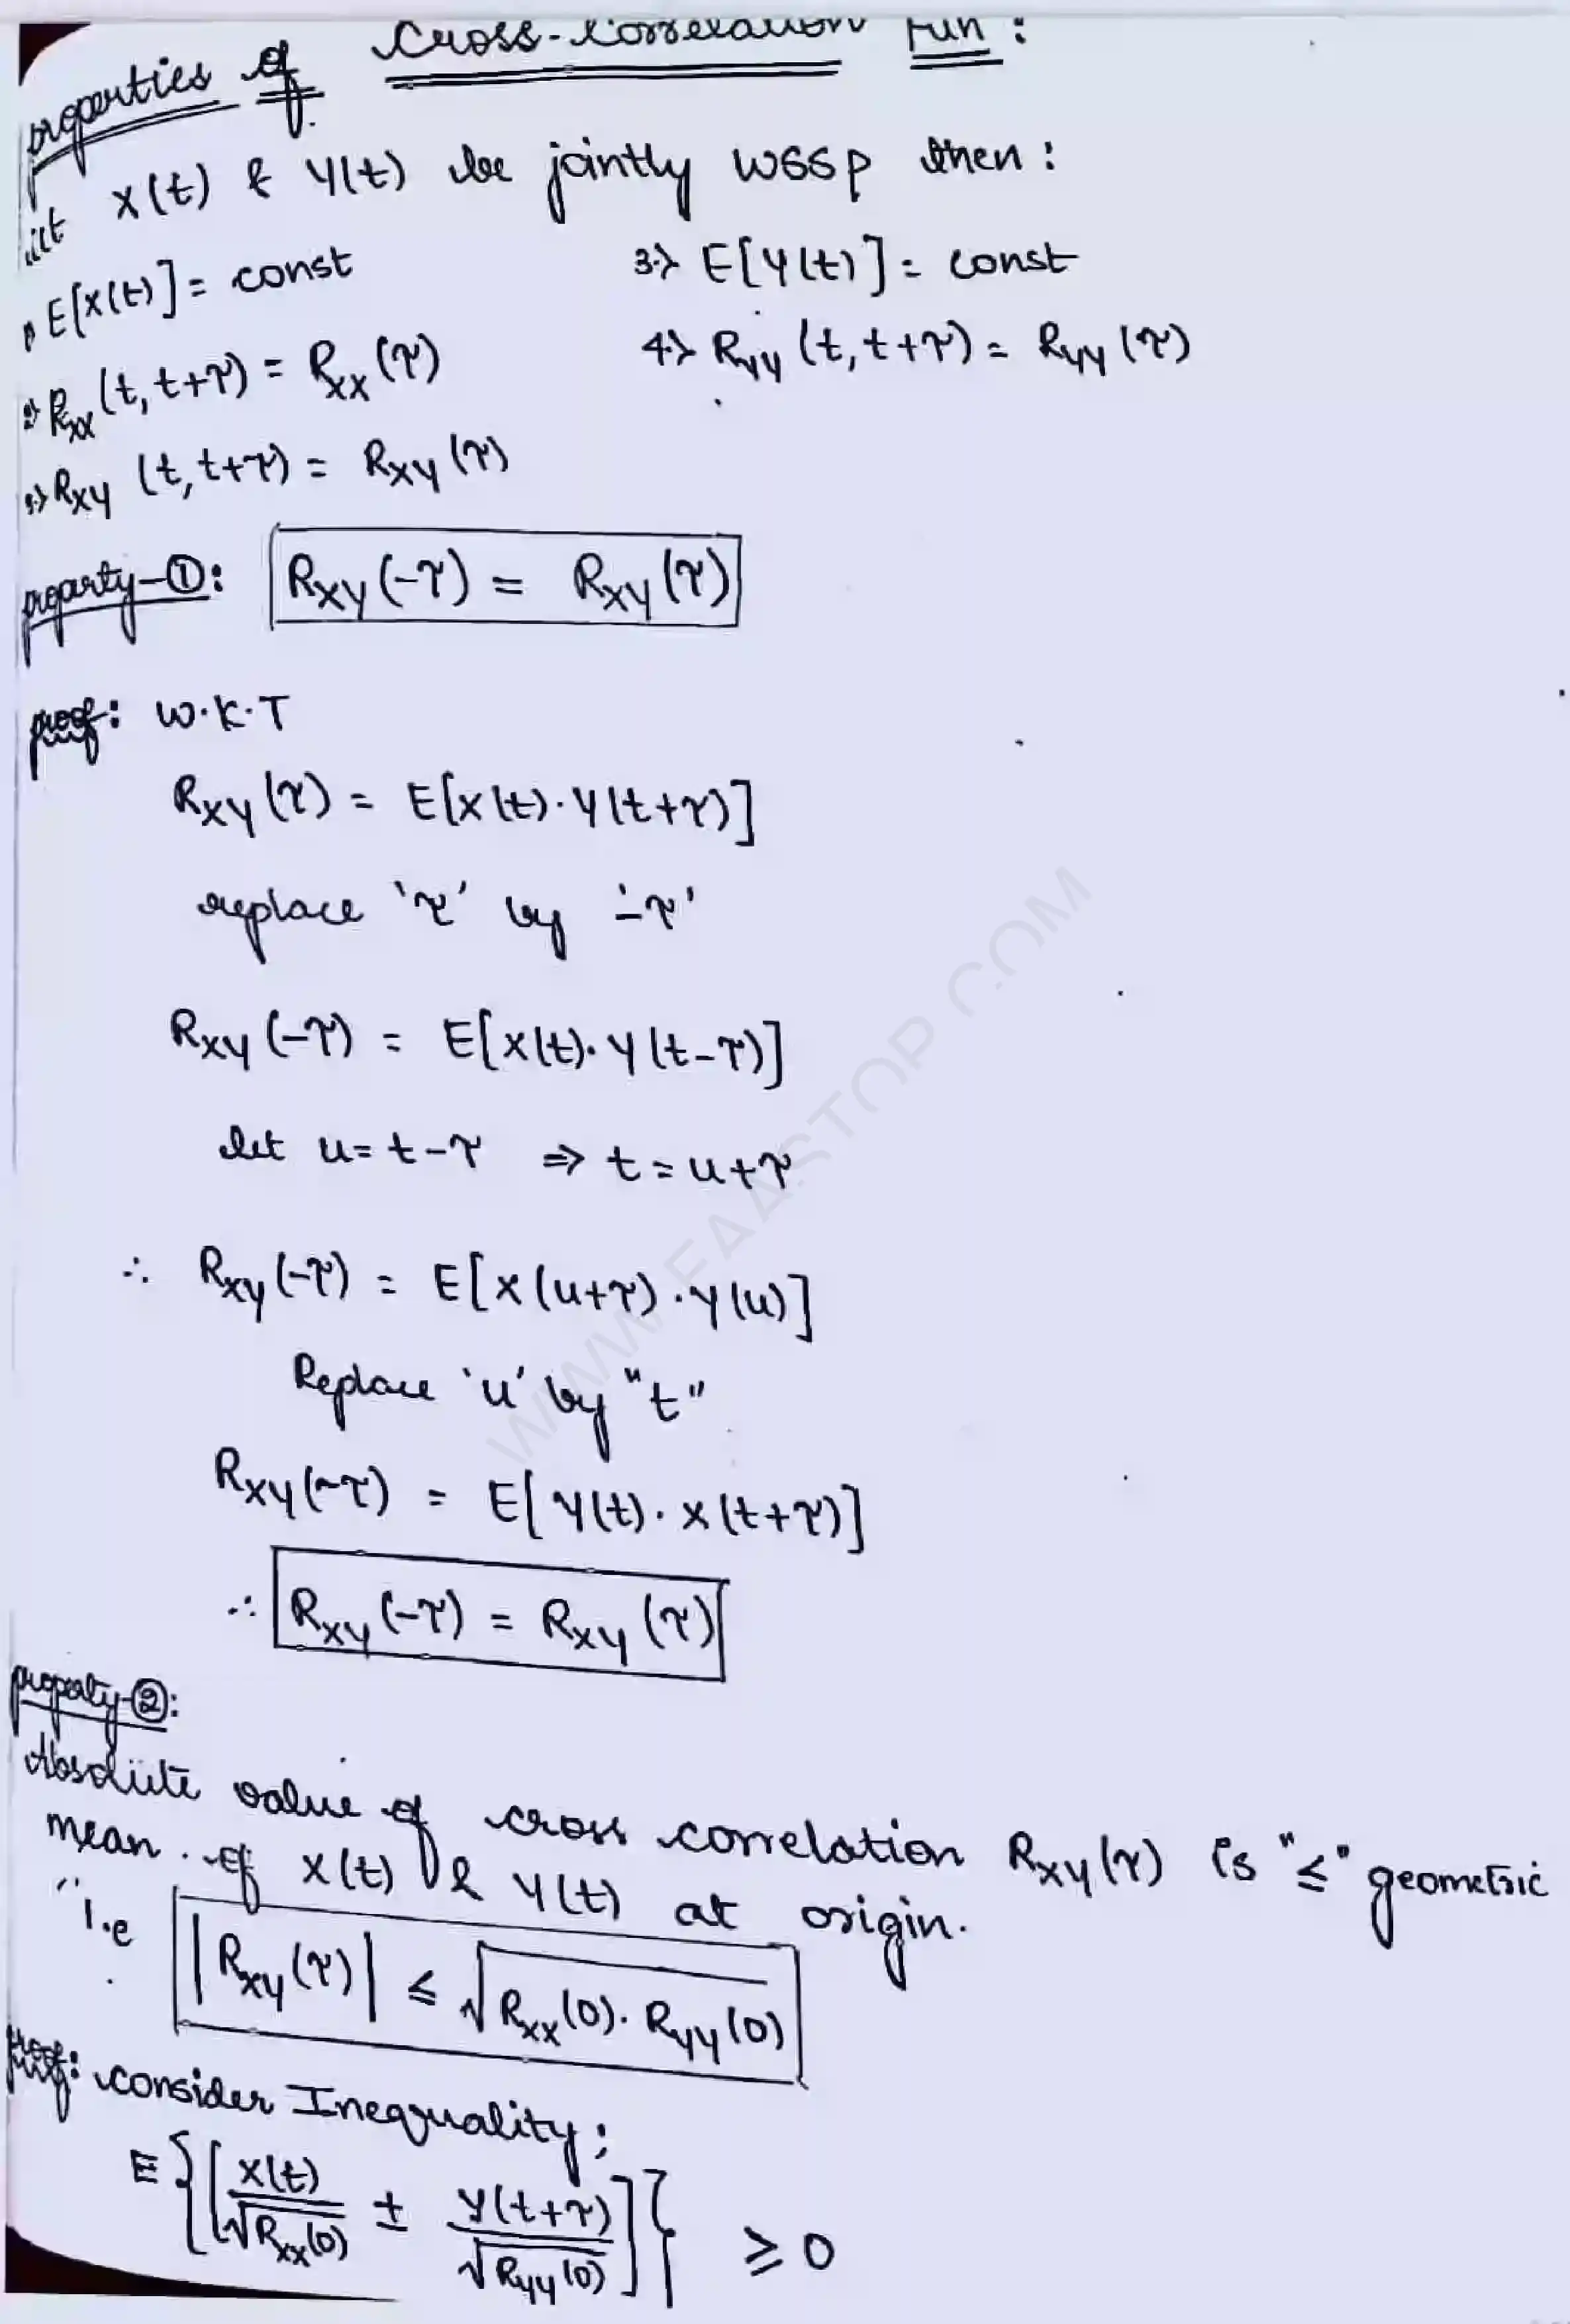 properties of cross-correlation fun:
let x(t) & y(t) be jointly WSSP then:
1) E[x(t)] = const 3.) E[y(t)] = const
2) Rxx(t, t+τ) = Rxx(τ) 4.) Ryy(t, t+τ) = Ryy(τ)
5.) Rxy(t, t+τ) = Rxy(τ)
property-①: Rxy(-τ) = Rxy(τ)
proof: W.K.T
Rxy(τ) = E[x(t).y(t+τ)]
replace 'τ' by '-τ'
Rxy(-τ) = E[x(t).y(t-τ)]
let u = t-τ ⇒ t = u+τ
∴ Rxy(-τ) = E[x(u+τ).y(u)]
Replace 'u' by "t"
Rxy(-τ) = E[y(t).x(t+τ)]
∴ Rxy(-τ) = Rxy(τ)
property-②:
Absolute value of cross correlation Rxy(τ) is "≤" geometric
mean of x(t) & y(t) at origin.
i.e |Rxy(τ)| ≤ √Rxx(0).Ryy(0)
proof: consider Inequality;
E{[x(t)/√Rxx(0) ± y(t+τ)/√Ryy(0)]} ≥ 0